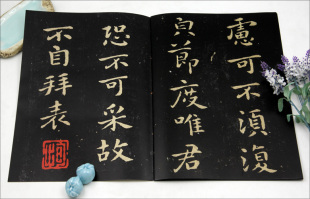 慮可不須復
貞節度唯君
恐不可采故
不自拜表